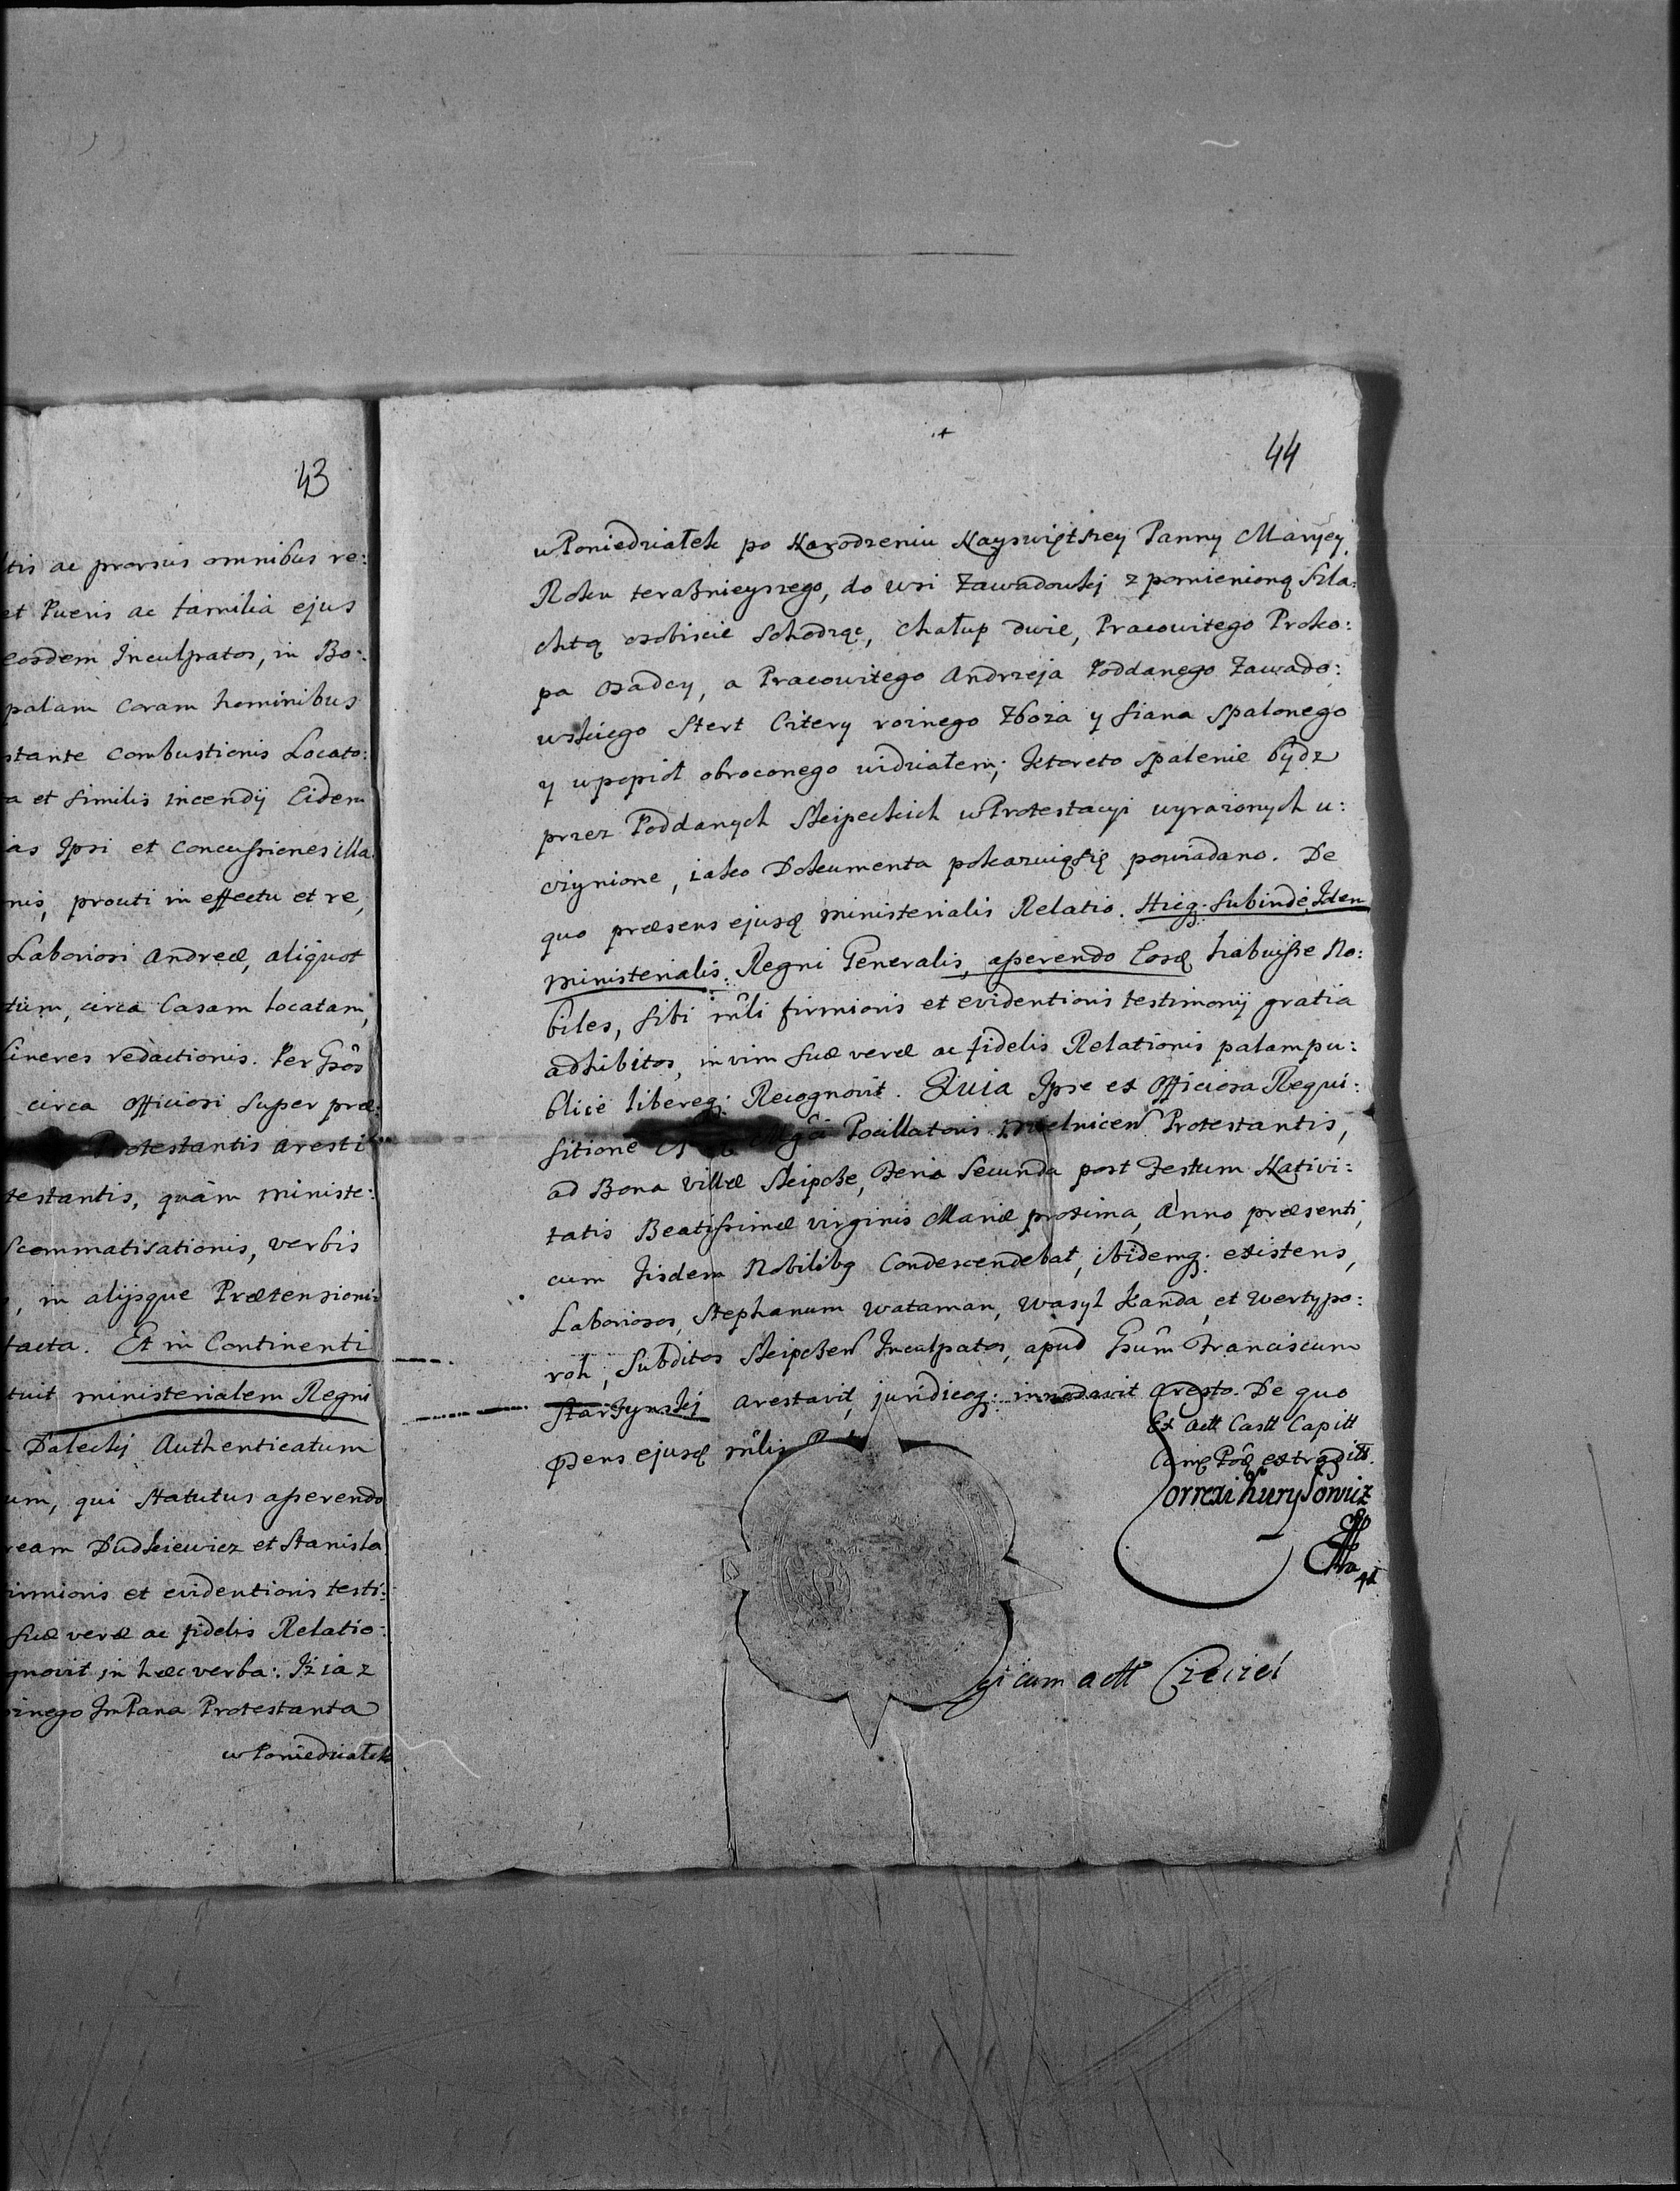 43
tis ac prorsus omnibus re:
et Pueris ac familia ejus
eosdem Inculpatos, in Bo:
palam coram hominibus
stante combustionis Locato:
a et similis incendij Eidem
as Ipsi et concussiones illa
nis, prouti in effectu et re,
Laboriosi Andreæ, aliquot
tum, circa Casam locatam,
Cineres redactionis. Per Gsôs
circa officiosi super præ:
Protestantis aresti
testantis, quàm ministe:
scommatisationis, verbis
, in alijsque Prætensioni:
facta. Et in Continenti
tuit ministerialem Regni
Daleckij Authenticatum
um, qui statutus asserendo
ream Dudkiewicz et Stanisla
irmioris et evidentioris testi:
suæ veræ ac fidelis Relatio:
gnovit in hæc verba: Iż ia z
inego Jm Pana Protestanta
w Poniedziałek
44
w Poniedziałek po Narodzeniu Nayświętszey Panny Maryey
Roku teraźnieyszego, do wsi Zawadowkj z pomienioną Szla:
chtą osobiscie schodząc, chałup dwie, Pracowitego Proko:
pa osadcy, a Pracowitego Andrzeja Poddanego Zawado:
wskiego stert Cztery roznego Zboża y siana spalonego
y w popioł obroconego widziałem; Ktoreto spalenie bydz
przez Poddanych Skipeckich w Protestacyi wyrazonych u:
czynione, iako Dokumenta pokazuią się powiadano. De
quo præsens ejusq ministerialis Relatio. Hicq. subinde, Idem
ministerialis Regni Generalis, asserendo Eosq habuisse No:
biles, sibi mĩli firmioris et evidentioris testimonij gratia
adhibitos, in vim suæ veræ ac fidelis Relationis palam pu:
blice libereq. Recognovit. Quia Ipse ex officiosa Requi:
sitione Mgci Pocillatoris Protestantis,
ad Bona villæ Skipcze, Feria Secunda post Festum Nativi:
tatis Beatissimæ virginis Mariæ proxima, Anno præsenti,
cum Iisdem Nobilibq Condescendebat, ibidemq. existens,
Laboriosos, Stephanum Wataman, Wasyl Kanda, et Wertypo:
roh, Subditos Skipczen Inculpatos, apud Gsũm Franciscum
Starzynskj arestavit, juridiceq. innodavit aresto. De quo
pñs ejusq mĩlis
Ex Actt Castt Capitt
Came Pod extradit.
Correxi
cum actt